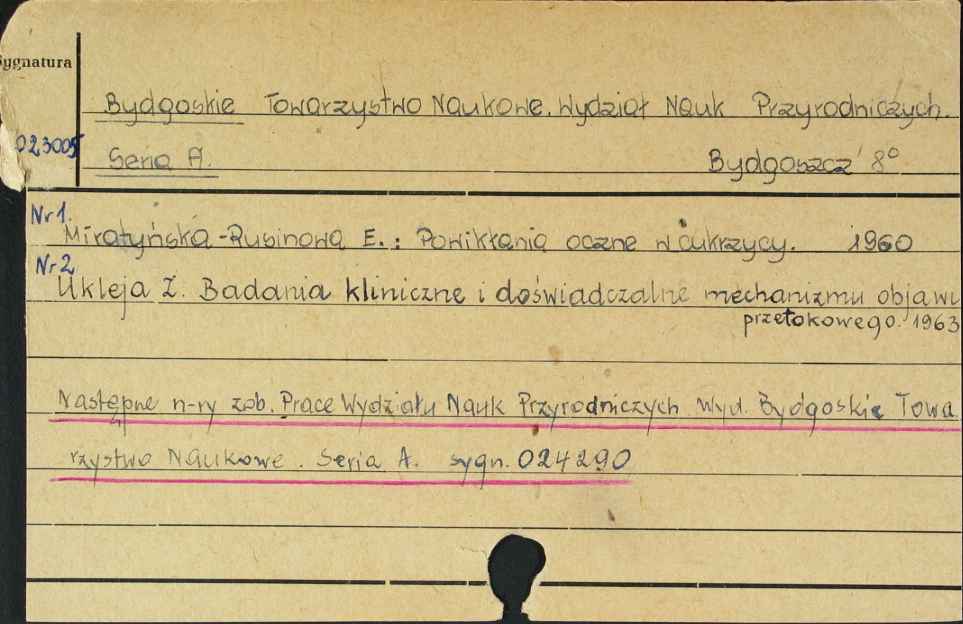 Sygnatura
Bydgoskie Towarzystwo Naukowe. Wydział Nauk Przyrodniczych.
023005
Seria A. Bydgoszcz 8°
Nr 1.
Miratyńska-Rubinowa E.: Powikłania oczne w cukrzycy. 1960
Nr 2
Ukleja Z. Badania kliniczne i doświadczalne mechanizmu objawu
przetokowego. 1963
Następne n-ry zob. Prace Wydziału Nauk Przyrodniczych Wyd. Bydgoskie Towa
rzystwo Naukowe. Seria A. sygn. 024290